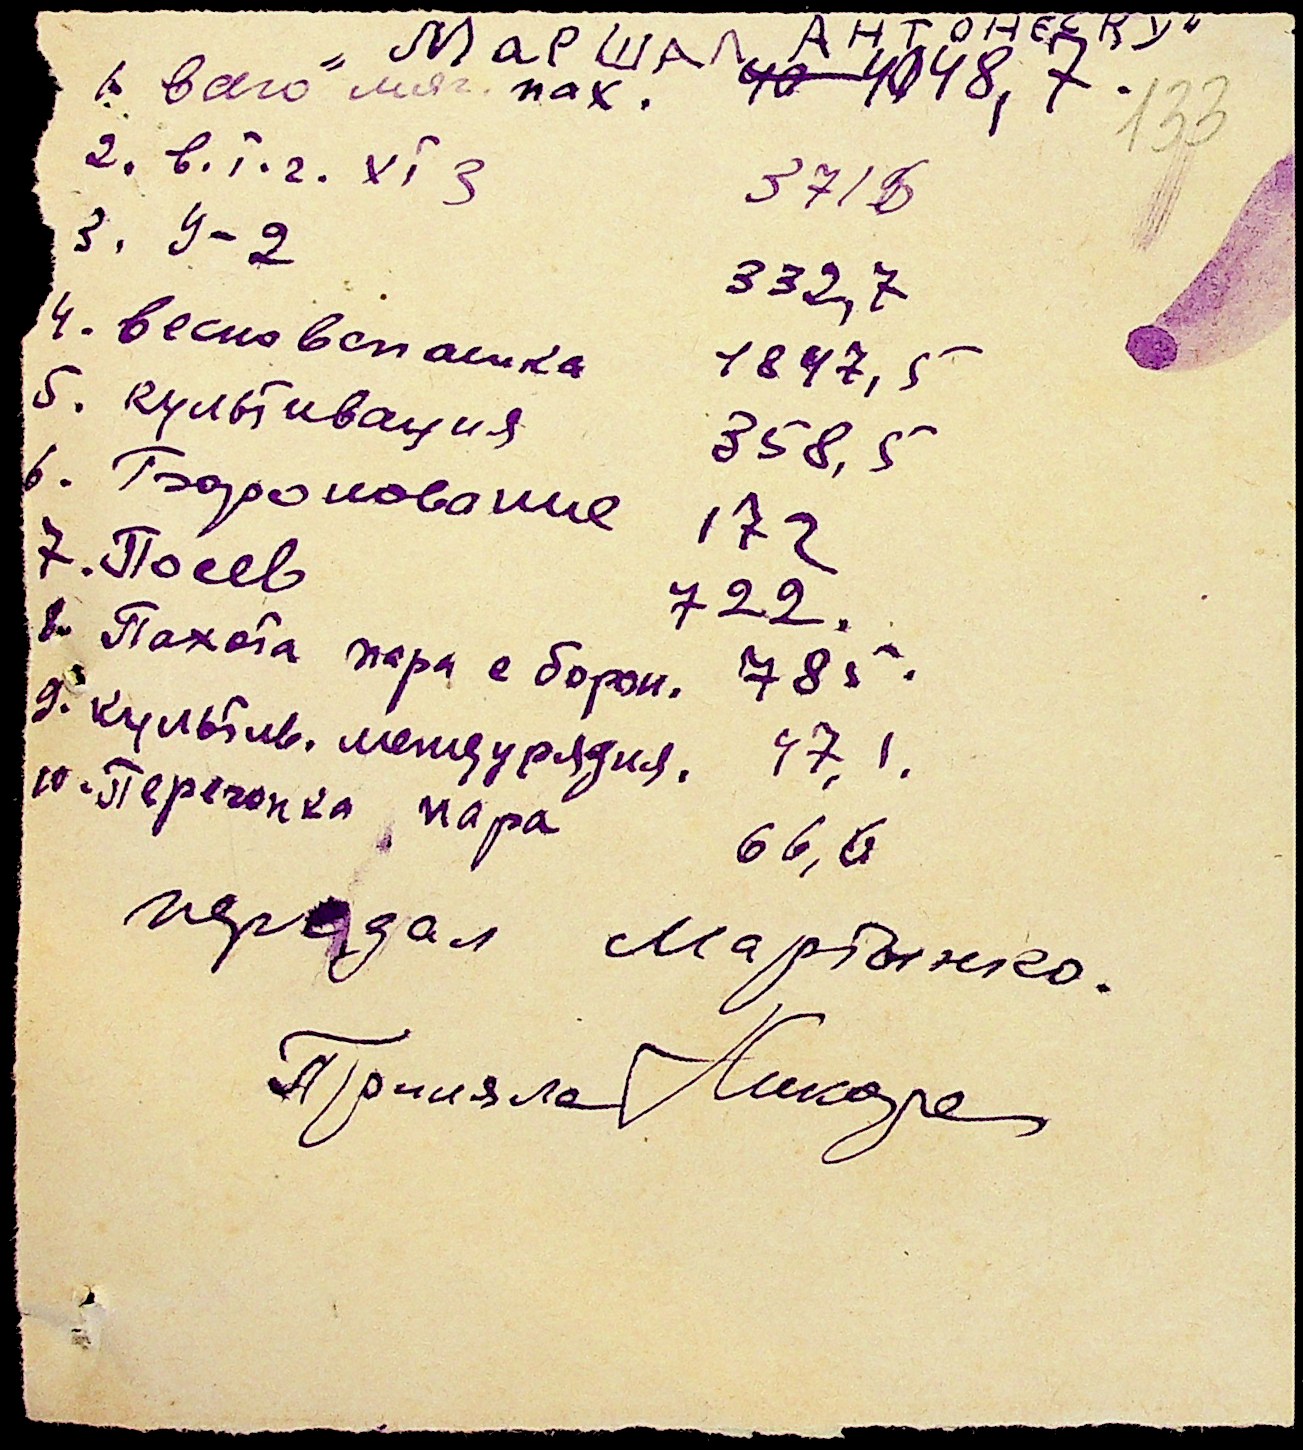 „Маршал Антонеску“
1. всего мяг. пах. 4048,7.
133
2. в.т.г. хтз 3716
3. У-2 332,7
4. весновспашка 1847,5
5. культивация 358,5
6. Боронование 172
7. Посев 722.
8. Пахота пара с борон. 785.
9. культив. междурядия. 47,1.
10. Перегонка пара 66,6
передал Мартынко.
Приняла